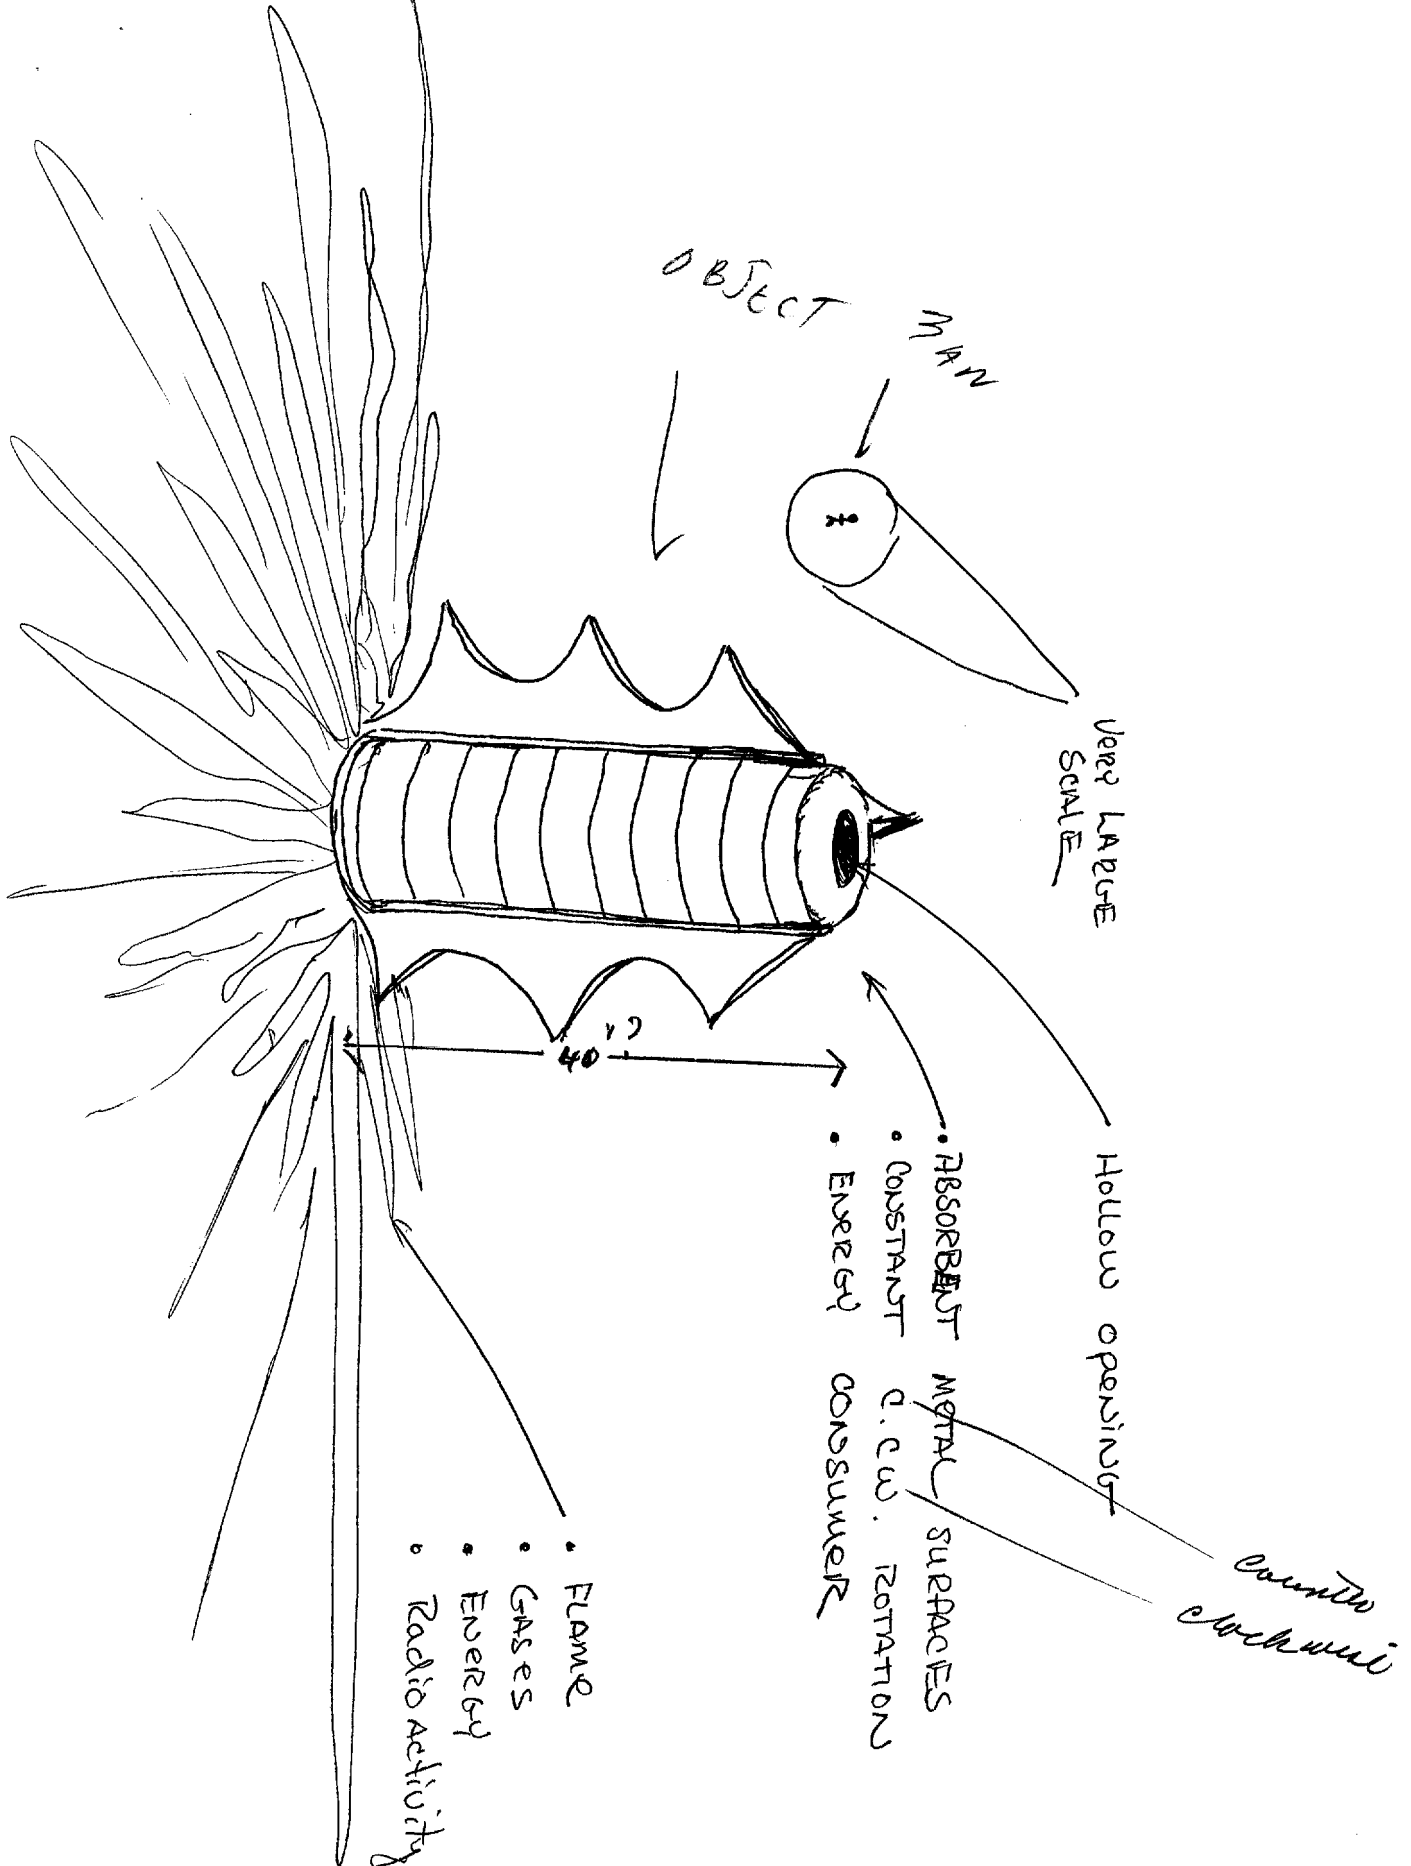 OBJECT
MAN
VERY LARGE
SCALE
Hollow opening
• ABSORBENT METAL SURFACES
• CONSTANT C.CW. ROTATION
• ENERGY CONSUMER
counter
clockwise
40'
?
• FLAME
• GASES
• ENERGY
• RadioActivity